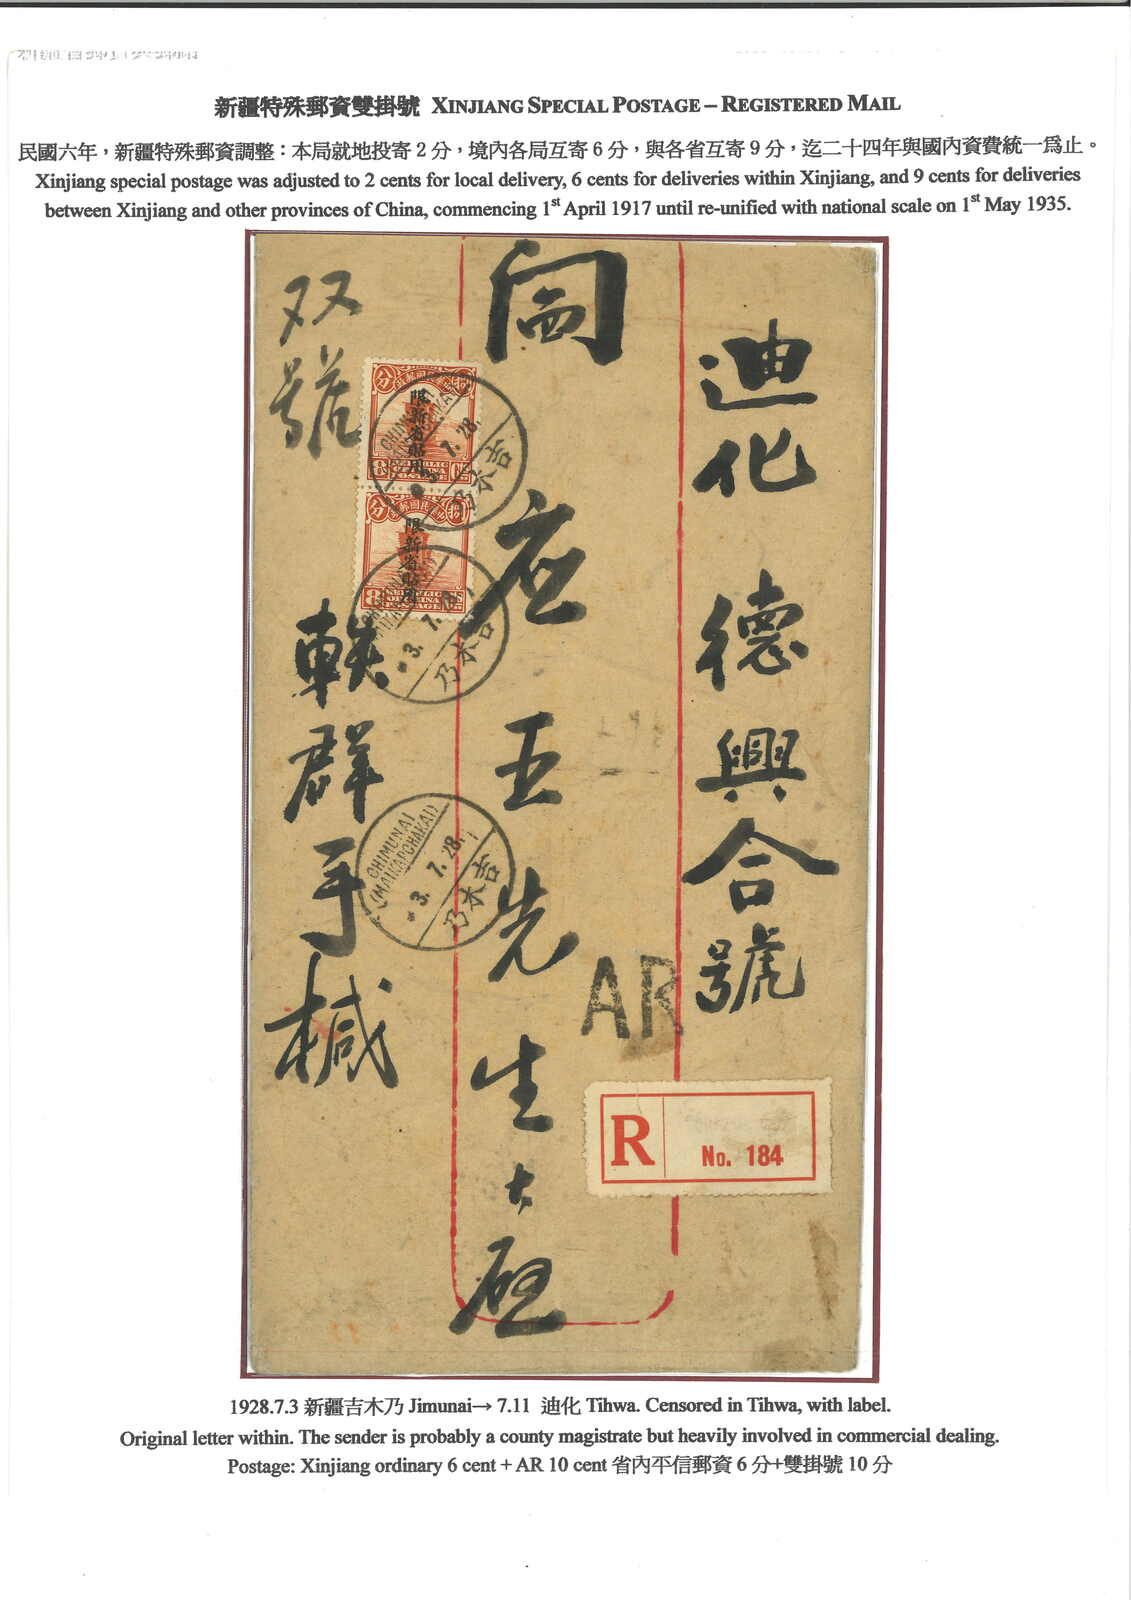 新疆特殊郵資雙掛號 XINJIANG SPECIAL POSTAGE – REGISTERED MAIL
民國六年，新疆特殊郵資調整：本局就地投寄 2 分，境內各局互寄 6 分，與各省互寄 9 分，迄二十四年與國內資費統一爲止。
Xinjiang special postage was adjusted to 2 cents for local delivery, 6 cents for deliveries within Xinjiang, and 9 cents for deliveries
between Xinjiang and other provinces of China, commencing 1st April 1917 until re-unified with national scale on 1st May 1935.
迪化德興合號
应五先生大啟
双號
群手械
限新省貼用
分
8
CHIMUNAI
3. 7. 28.
吉木乃
限新省貼用
分
8
3. 7.
吉木乃
CHIMUNAI
(MAIKAPCHAKAI)
3. 7. 28.
吉木乃
AR
R
No. 184
1928.7.3 新疆吉木乃 Jimunai→ 7.11 迪化 Tihwa. Censored in Tihwa, with label.
Original letter within. The sender is probably a county magistrate but heavily involved in commercial dealing.
Postage: Xinjiang ordinary 6 cent + AR 10 cent 省內平信郵資 6 分+雙掛號 10 分